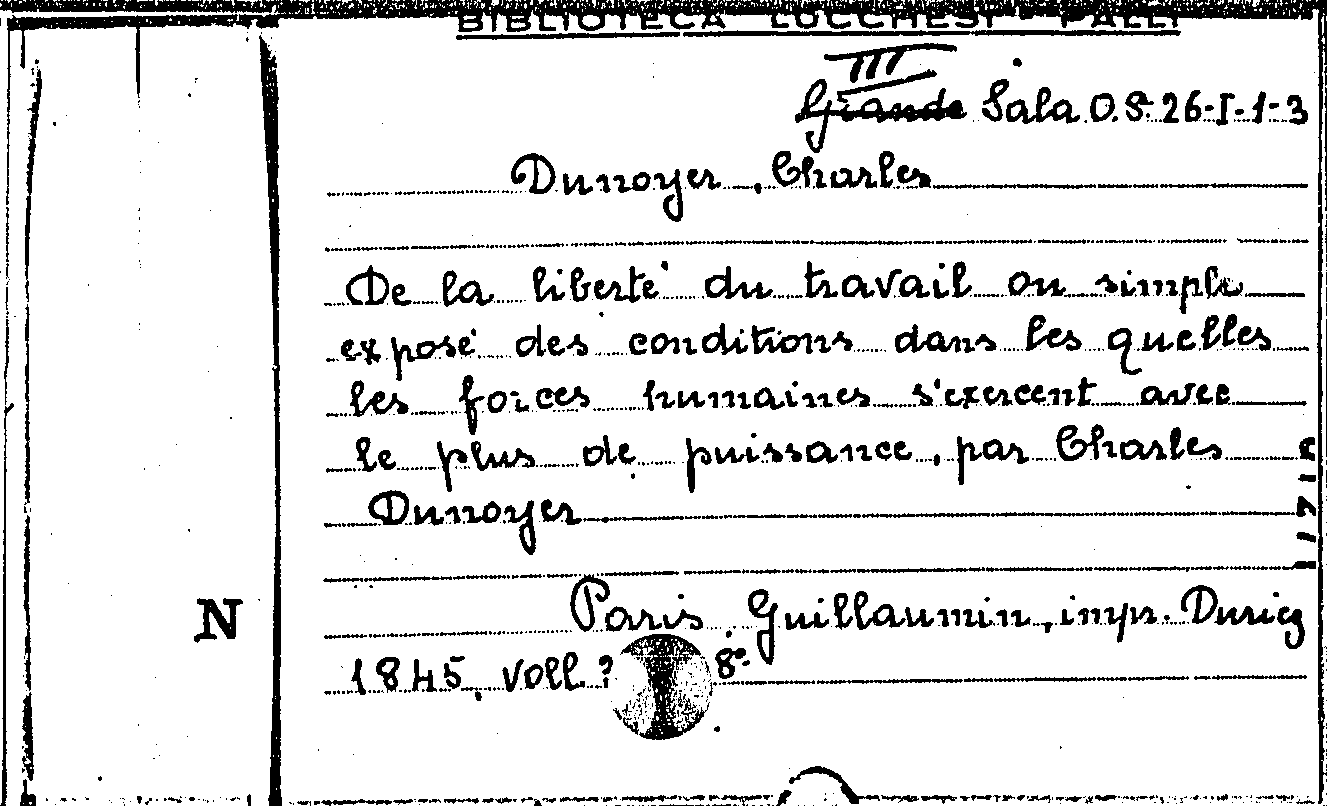 BIBLIOTECA LUCCHESI - PALLI
III
Grande Sala O.S. 26-I-1-3
Dunoyer, Charles
De la liberté du travail ou simple
exposé des conditions dans les quelles
les forces humaines s'exercent avec
le plus de puissance, par Charles
Dunoyer
N
Paris, Guillaumin, impr.
1845, voll. 8°